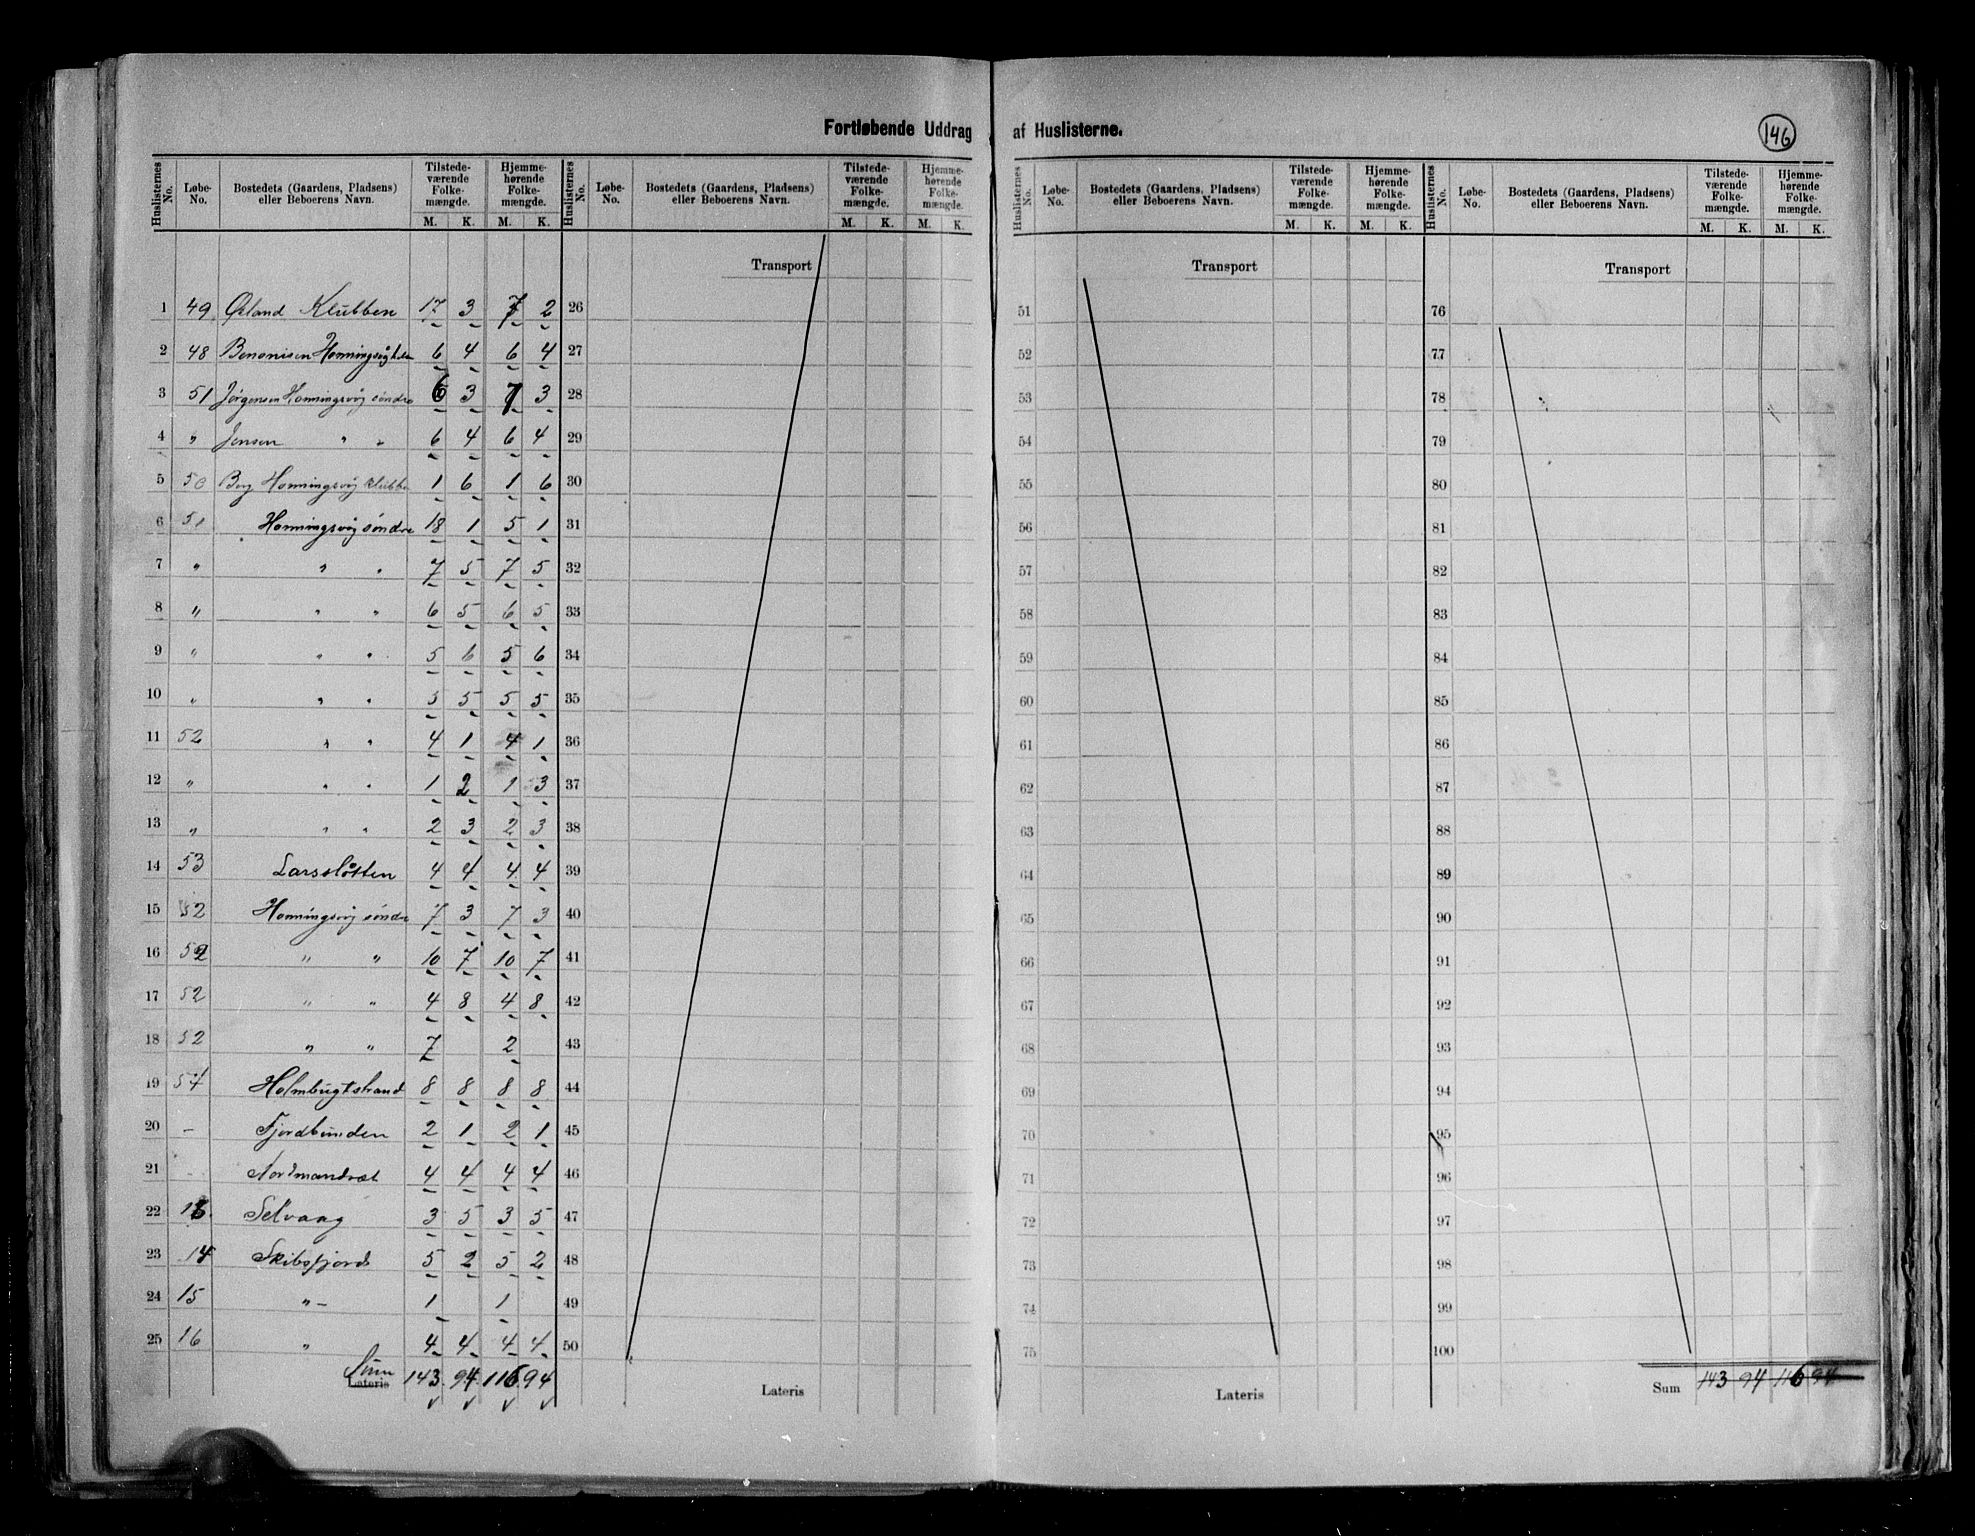 Fortløbende Uddrag af Huslisterne.
146
Huslisternes No. Løbe-No. Bostedets (Gaardens, Pladsens) eller Beboerens Navn. Tilstedeværende Folkemængde. M. K. Hjemmehørende Folkemængde. M. K.
Huslisternes No. Løbe-No. Bostedets (Gaardens, Pladsens) eller Beboerens Navn. Tilstedeværende Folkemængde. M. K. Hjemmehørende Folkemængde. M. K.
Huslisternes No. Løbe-No. Bostedets (Gaardens, Pladsens) eller Beboerens Navn. Tilstedeværende Folkemængde. M. K. Hjemmehørende Folkemængde. M. K.
Huslisternes No. Løbe-No. Bostedets (Gaardens, Pladsens) eller Beboerens Navn. Tilstedeværende Folkemængde. M. K. Hjemmehørende Folkemængde. M. K.
Transport Transport Transport
1 49 Klubben 17 3 7 2 26 51 76
2 48 Benonisen 6 4 6 4 27 52 77
3 51 Jørgensen Honningsvåg søndre 6 3 7 3 28 53 78
4 " Jensen " " 6 4 6 4 29 54 79
5 50 Berg Honningsvåg 1 6 1 6 30 55 80
6 51 Honningsvåg søndre 18 1 5 1 31 56 81
7 " " " 7 5 7 5 32 57 82
8 " " " 6 5 6 5 33 58 83
9 " " " 5 6 5 6 34 59 84
10 " " " 5 5 5 5 35 60 85
11 52 " " 4 1 4 1 36 61 86
12 " " " 1 2 1 3 37 62 87
13 " " " 2 3 2 3 38 63 88
14 53 Larssløtten 4 4 4 4 39 64 89
15 52 Honningsvåg søndre 7 3 7 3 40 65 90
16 52 " " 10 7 10 7 41 66 91
17 52 " " 4 8 4 8 42 67 92
18 52 " " 7 2 43 68 93
19 54 Holmbugtstrand 8 8 8 8 44 69 94
20 - Fjordbunden 2 1 2 1 45 70 95
21 Nordmandsæt 4 4 4 4 46 71 96
22 Selvaag 3 5 3 5 47 72 97
23 14 Skibsfjord 5 2 5 2 48 73 98
24 15 " - 1 1 49 74 99
25 16 " 4 4 4 4 50 75 100
Sum Lateris 143 94 116 94 Lateris Lateris Sum 143 94 116 94